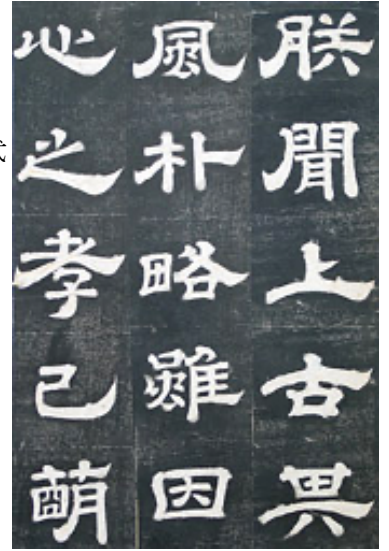 朕聞上古其
風朴略雖因
心之孝已萌